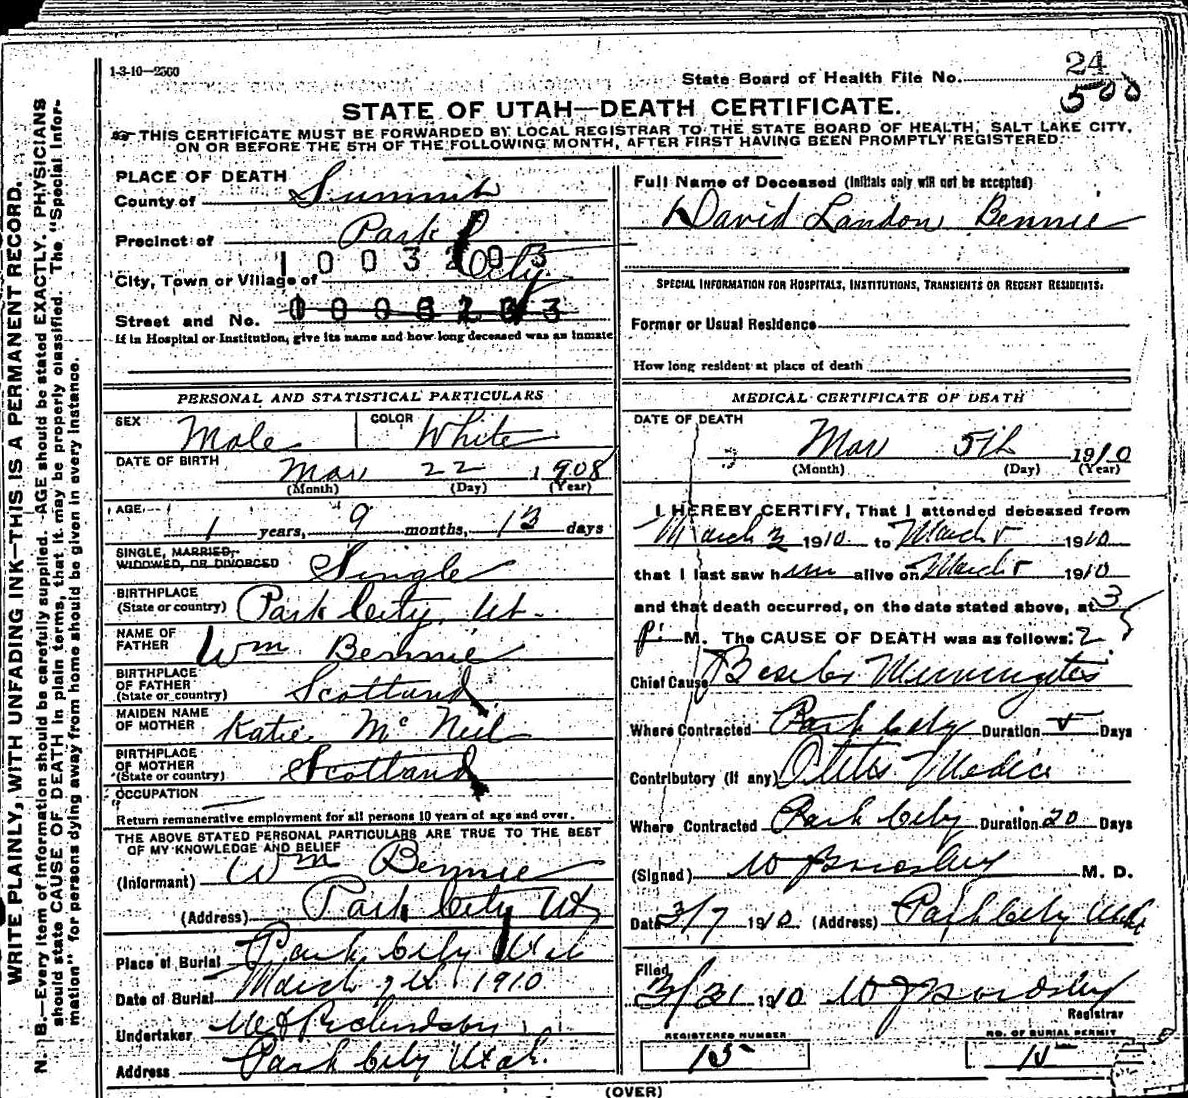 1-3-10-2500
State Board of Health File No. 24
500
STATE OF UTAH—DEATH CERTIFICATE.
THIS CERTIFICATE MUST BE FORWARDED BY LOCAL REGISTRAR TO THE STATE BOARD OF HEALTH, SALT LAKE CITY,
ON OR BEFORE THE 5TH OF THE FOLLOWING MONTH, AFTER FIRST HAVING BEEN PROMPTLY REGISTERED.
WRITE PLAINLY, WITH UNFADING INK—THIS IS A PERMANENT RECORD.
N. B.—Every item of information should be carefully supplied. AGE should be stated EXACTLY. PHYSICIANS
should state CAUSE OF DEATH in plain terms, that it may be properly classified. The "Special Infor-
mation" for persons dying away from home should be given in every instance.
PLACE OF DEATH
County of Summit
Precinct of Park
1003203
City, Town or Village of City
Street and No.
If in Hospital or Institution, give its name and how long deceased was an inmate
PERSONAL AND STATISTICAL PARTICULARS
SEX Male COLOR White
DATE OF BIRTH Mar 22 1908
(Month) (Day) (Year)
AGE 1 years, 9 months, 13 days
SINGLE, MARRIED,
WIDOWED, OR DIVORCED Single
BIRTHPLACE
(State or country) Park City, Ut.
NAME OF
FATHER Wm Bennie
BIRTHPLACE
OF FATHER
(State or country) Scotland
MAIDEN NAME
OF MOTHER Katie McNeil
BIRTHPLACE
OF MOTHER
(State or country) Scotland
OCCUPATION
Return remunerative employment for all persons 10 years of age and over.
THE ABOVE STATED PERSONAL PARTICULARS ARE TRUE TO THE BEST
OF MY KNOWLEDGE AND BELIEF
(Informant) Wm Bennie
(Address) Park City Ut
Place of Burial Park City Utah
Date of Burial March 1910
Undertaker
Address Park City Utah.
Full Name of Deceased (Initials only will not be accepted)
David Landon Bennie
SPECIAL INFORMATION FOR HOSPITALS, INSTITUTIONS, TRANSIENTS OR RECENT RESIDENTS:
Former or Usual Residence
How long resident at place of death
MEDICAL CERTIFICATE OF DEATH
DATE OF DEATH
Mar 5th 1910
(Month) (Day) (Year)
I HEREBY CERTIFY, That I attended deceased from
March 3 1910 to March 5 1910
that I last saw him alive on March 5 1910
and that death occurred, on the date stated above, at 3
P. M. The CAUSE OF DEATH was as follows:
Chief Cause Meningitis
Where Contracted Park City Duration 5 Days
Contributory (if any) Otitis Media
Where Contracted Park City Duration 20 Days
(Signed) M. D.
Date 3/7 1910 (Address) Park City Utah
Filed
3/31 1910
Registrar
REGISTERED NUMBER
15
NO. OF BURIAL PERMIT
15
(OVER)